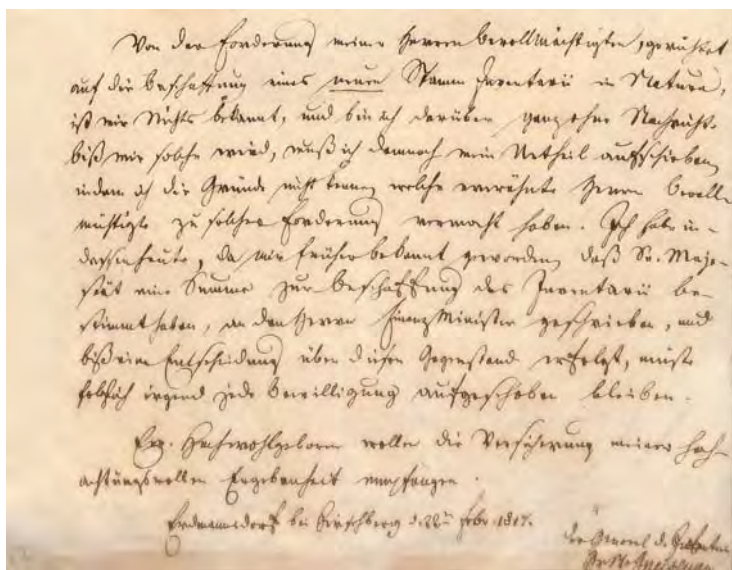 Von der Forderung meiner Herren Bevollmächtigten, gerichtet
auf die Beschaffung eines neuen Stamm Inventarii in Natura,
ist mir Nichts bekannt, und bin ich darüber ganz ohne Nachricht.
biß mir solche wird, muß ich demnach mein Urtheil aufschieben,
indem ich die Gründe nicht kenne, welche erwähnte Herrn Bevoll-
mächtigte zu solcher Forderung vermocht haben. Ich habe in-
dessen heute, da mir früher bekannt geworden, daß Se. Maje-
stät eine Summe zur Beschaffung des Inventarii be-
stimmt haben, an den Herrn Finanz Minister geschrieben, und
biß eine Entscheidung über diesen Gegenstand erfolgt, müste
folglich irgend jede Bewilligung aufgeschoben bleiben.
Ew. Hochwohlgeboren wollen die Versicherung meiner hoch-
achtungsvollen Ergebenheit empfangen.
Erdmannsdorf bei Hirschberg d. 22t Febr. 1817.
der General d. Infanterie
Gr. N. v. Gneisenau